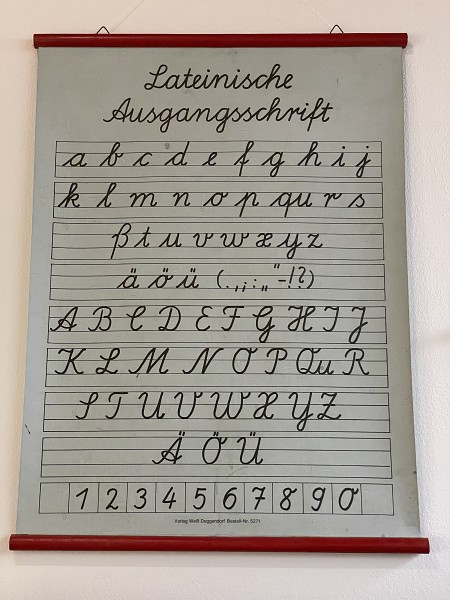 Lateinische
Ausgangsschrift
a b c d e f g h i j
k l m n o p qu r s
ß t u v w x y z
ä ö ü ( . , ; : „ “ - ! ? )
A B C D E F G H I J
K L M N O P Qu R
S T U V W X Y Z
Ä Ö Ü
1 2 3 4 5 6 7 8 9 0
Verlag Weiß Deggendorf Bestell-Nr. 5271